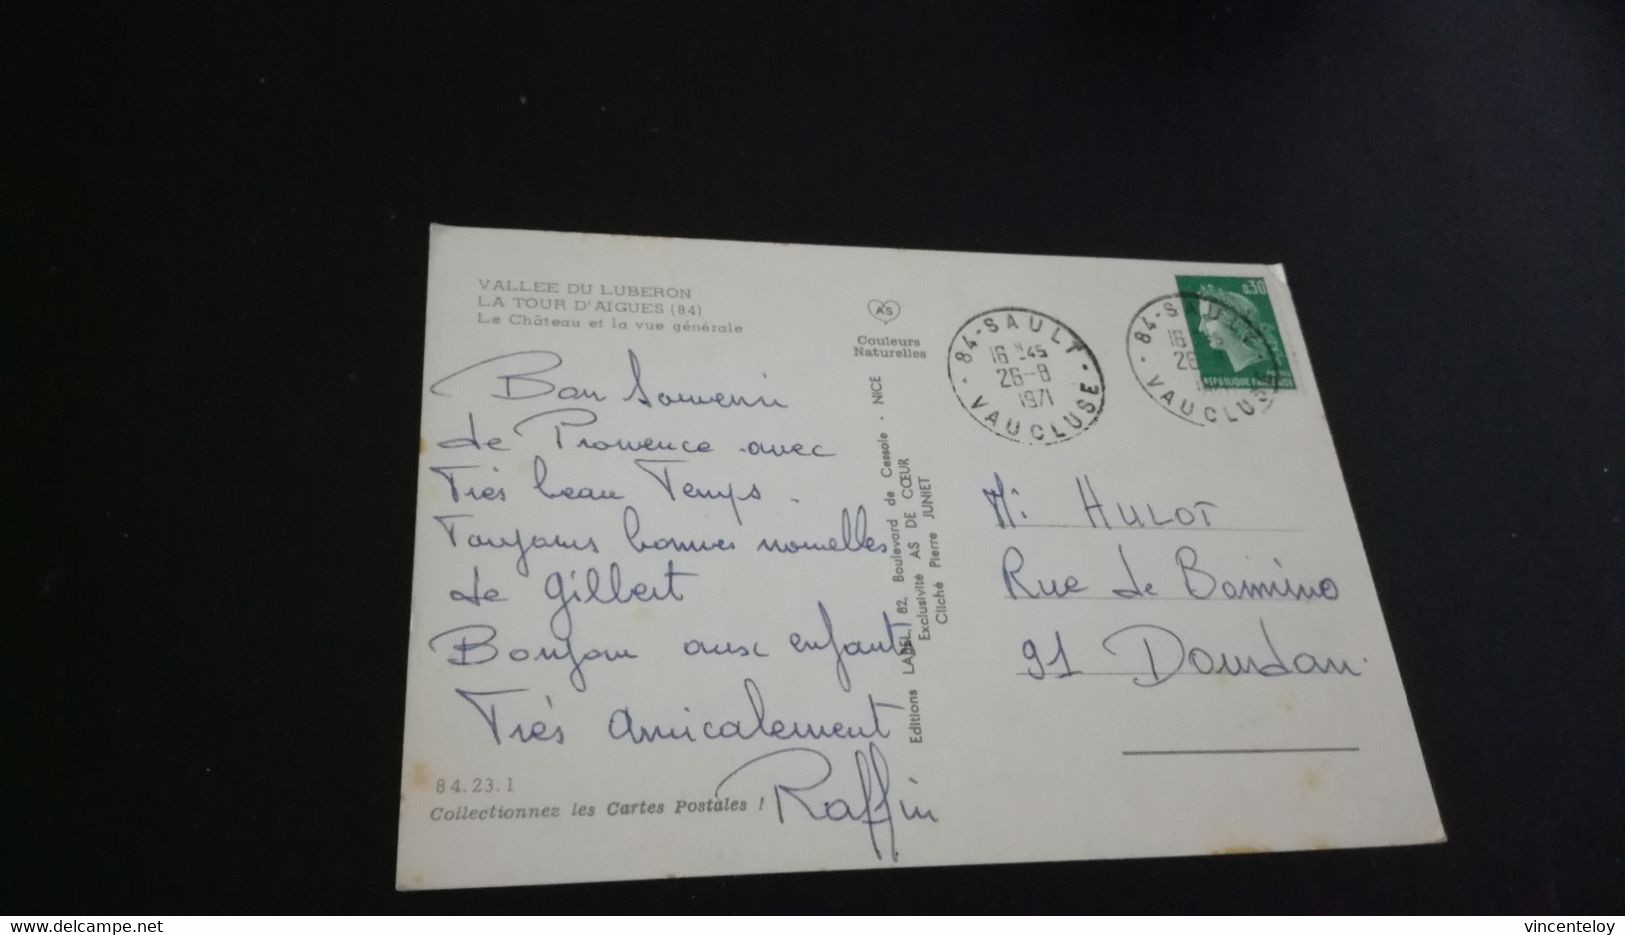 VALLEE DU LUBERON
LA TOUR D'AIGUES (84)
Le Château et la vue générale
AS
Couleurs
Naturelles
Bon Souvenir
de Provence avec
Très beau Temps.
Toujours bonnes nouvelles
de Gilbert
Bonjour aux enfants
Très Amicalement
Raffin
84.23.1
Collectionnez les Cartes Postales !
Editions LABEL, 82, Boulevard de Cessole - NICE
Exclusivité AS DE CŒUR
Cliché Pierre JUNIET
84-SAULT
16 H45
26-8
1971
VAUCLUSE
84-SAULT
16 45
26
1971
VAUCLUSE
0,30
REPUBLIQUE FRANCAISE
M. HULOT
Rue de
91 Dourdan.
delcampe.net
vincenteloy